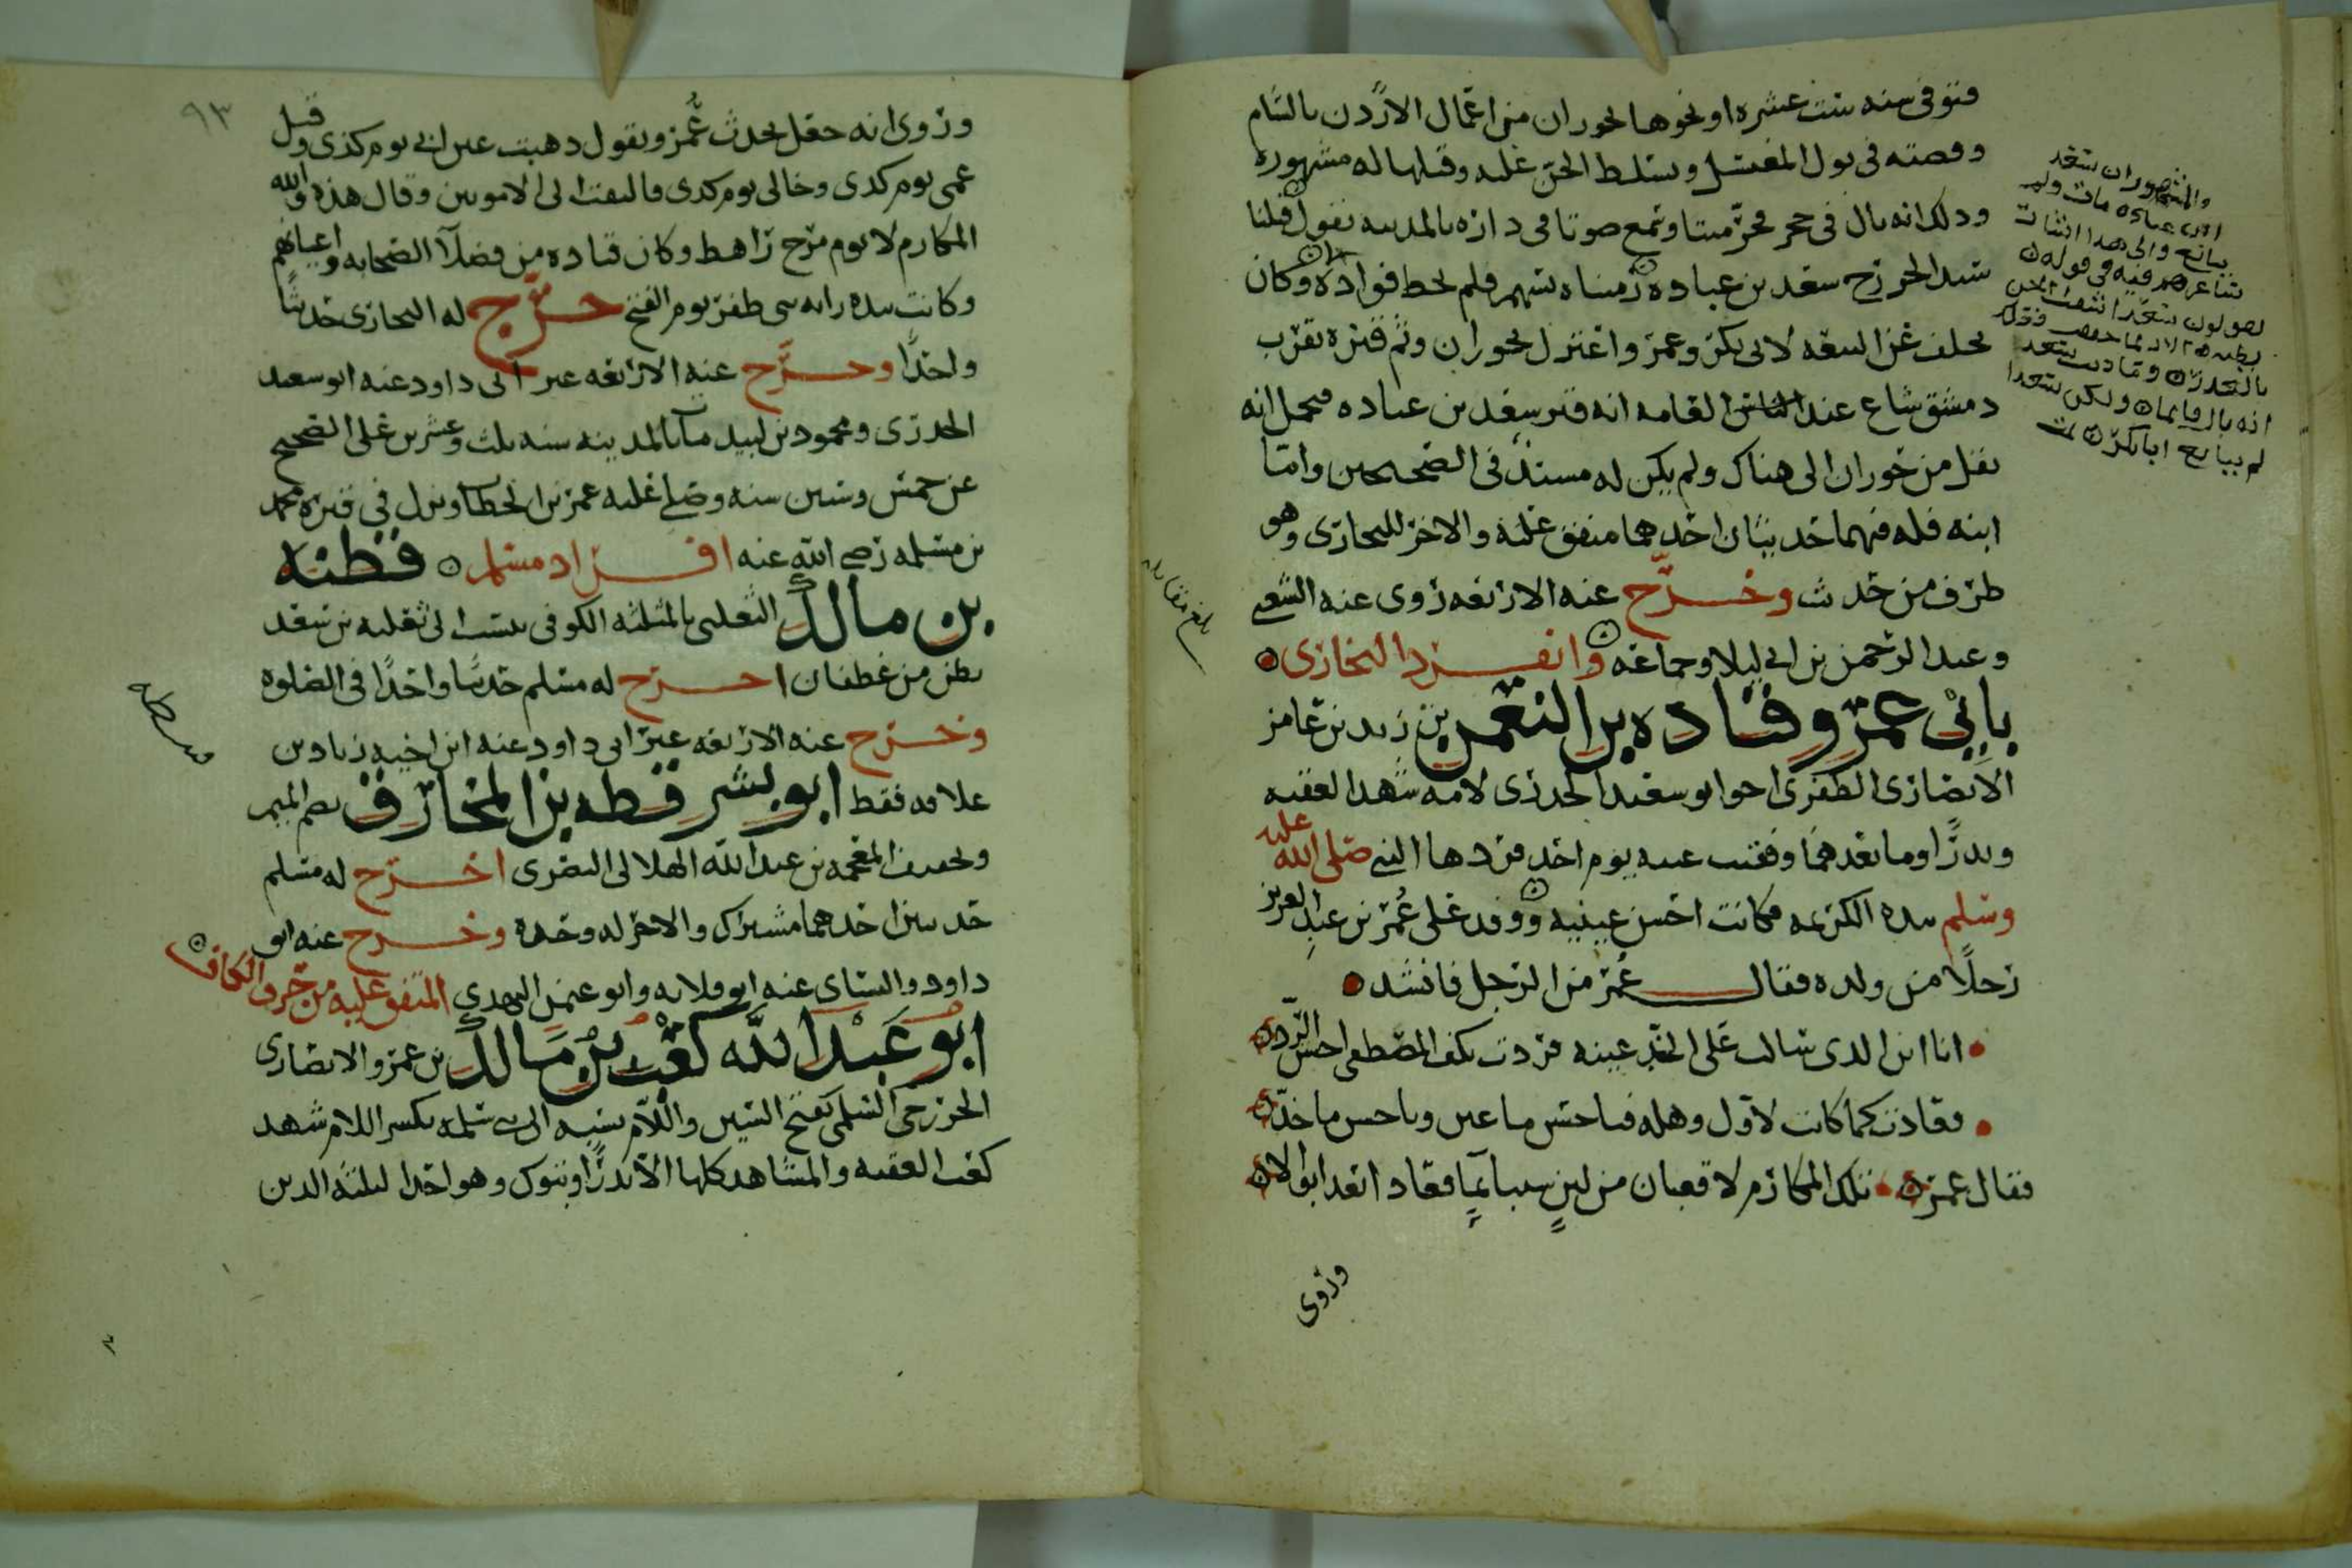 فتوفى سنه ست عشره او نحوها بحوران من اعمال الاردن بالشام
وقصته فى بول المغتسل وتسلط الجن عليه وقتلها له مشهوره
وذلك انه بال فى حجر فخر ميتا وسمع صوتا فى داره بالمدينه نقول قتلنا
سيد الخزرج سعد بن عباده رميناه بسهم فلم يخط فواده وكان
تخلف عن البيعه لابى بكر وعمر واعتزل بحوران وثم قبره بقرب
دمشق شاع عند العامه انه قبر سعد بن عباده فيحمل انه
نقل من حوران الى هناك ولم يكن له مسند فى الصحيحين واما
ابنه فله فيهما حديثان احدهما متفق عليه والاخر للبخارى وهو
طرف من حديث وخرج عنه الاربعه روى عنه الشعبى
وعبد الرحمن بن ابى ليلا وجماعه وانفرد البخارى
بابى عمرو قتاده بن النعمن بن زيد بن عامر
الانصارى الظفرى اخو ابو سعيد الخدرى لامه شهد العقبه
وبدرًا وما بعدهما وفقئت عينه يوم احد فردها النبى صلى الله عليه
وسلم بيده الكريمه فكانت احسن عينيه ووفد على عمر بن عبد العزيز
رجلًا من ولده فقال عمر من الرجل فانشد
انا ابن الذى سالت على الخد عينه فردت بكف المصطفى احسن الرد
فعادت كما كانت لاول وهله فيا حسن ما عين ويا حسن ما خد
فقال عمر تلك المكارم لا قعبان من لبن شيبا بمآء فعادا بعد ابوالا
وروى
والمشهور ان سعد
ابن عباده مات ولم
يبايع والى هذا اشار
شاعرهم فيه فى قوله
يقولون سعدا شقت الجن
بطنه الا ربما حققت فعلك
بالغدر وما ذنب سعد
انه بال قائما ولكن سعدا
لم يبايع ابا بكر
بلغ مقابله
٩٣
وروى انه جعل يحدث عمر ويقول ذهبت عين ابى يوم كذى وقتل
عمى يوم كذى وخالى يوم كذى فالتفت الى الامويين وقال هذه والله
المكارم لا يوم مرج راهط وكان قتاده من فضلآ الصحابه واعيانهم
وكانت بيده رايه بنى ظفر يوم الفتح خرج له البخارى حديثًا
واحدًا وخرج عنه الاربعه غير ابى داود عنه ابو سعيد
الخدرى ومحمود بن لبيد مات بالمدينه سنه ثلث وعشرين على الصحيح
عن خمس وستين سنه وصلى عليه عمر بن الخطاب ونزل فى قبره محمد
بن مسلمه رضى الله عنه افراد مسلم قطبه
بن مالك الثعلبى بالمثلثه الكوفى ينسب الى ثعلبه بن سعد
بطن من غطفان اخرج له مسلم حديثا واحدًا فى الصلوه
وخرج عنه الاربعه غير ابى داود عنه ابن اخيه زياد بن
علاقه فقط ابو بشر قطبه بن المخارق بضم الميم
وتخفيف المعجمه بن عبد الله الهلالى البصرى اخرج له مسلم
حديثين احدهما مشترك والاخر له وحده وخرج عنه ابو
داود والنساى عنه ابو قلابه وابو عثمن النهدى المتفق عليه من حرف الكاف
ابو عبد الله كعب بن مالك بن عمرو الانصارى
الخزرجى السلمى بفتح السين واللام نسبه الى بنى سلمه بكسر اللام شهد
كعب العقبه والمشاهد كلها الا بدرًا وتبوك وهو احد الثلثه الذين